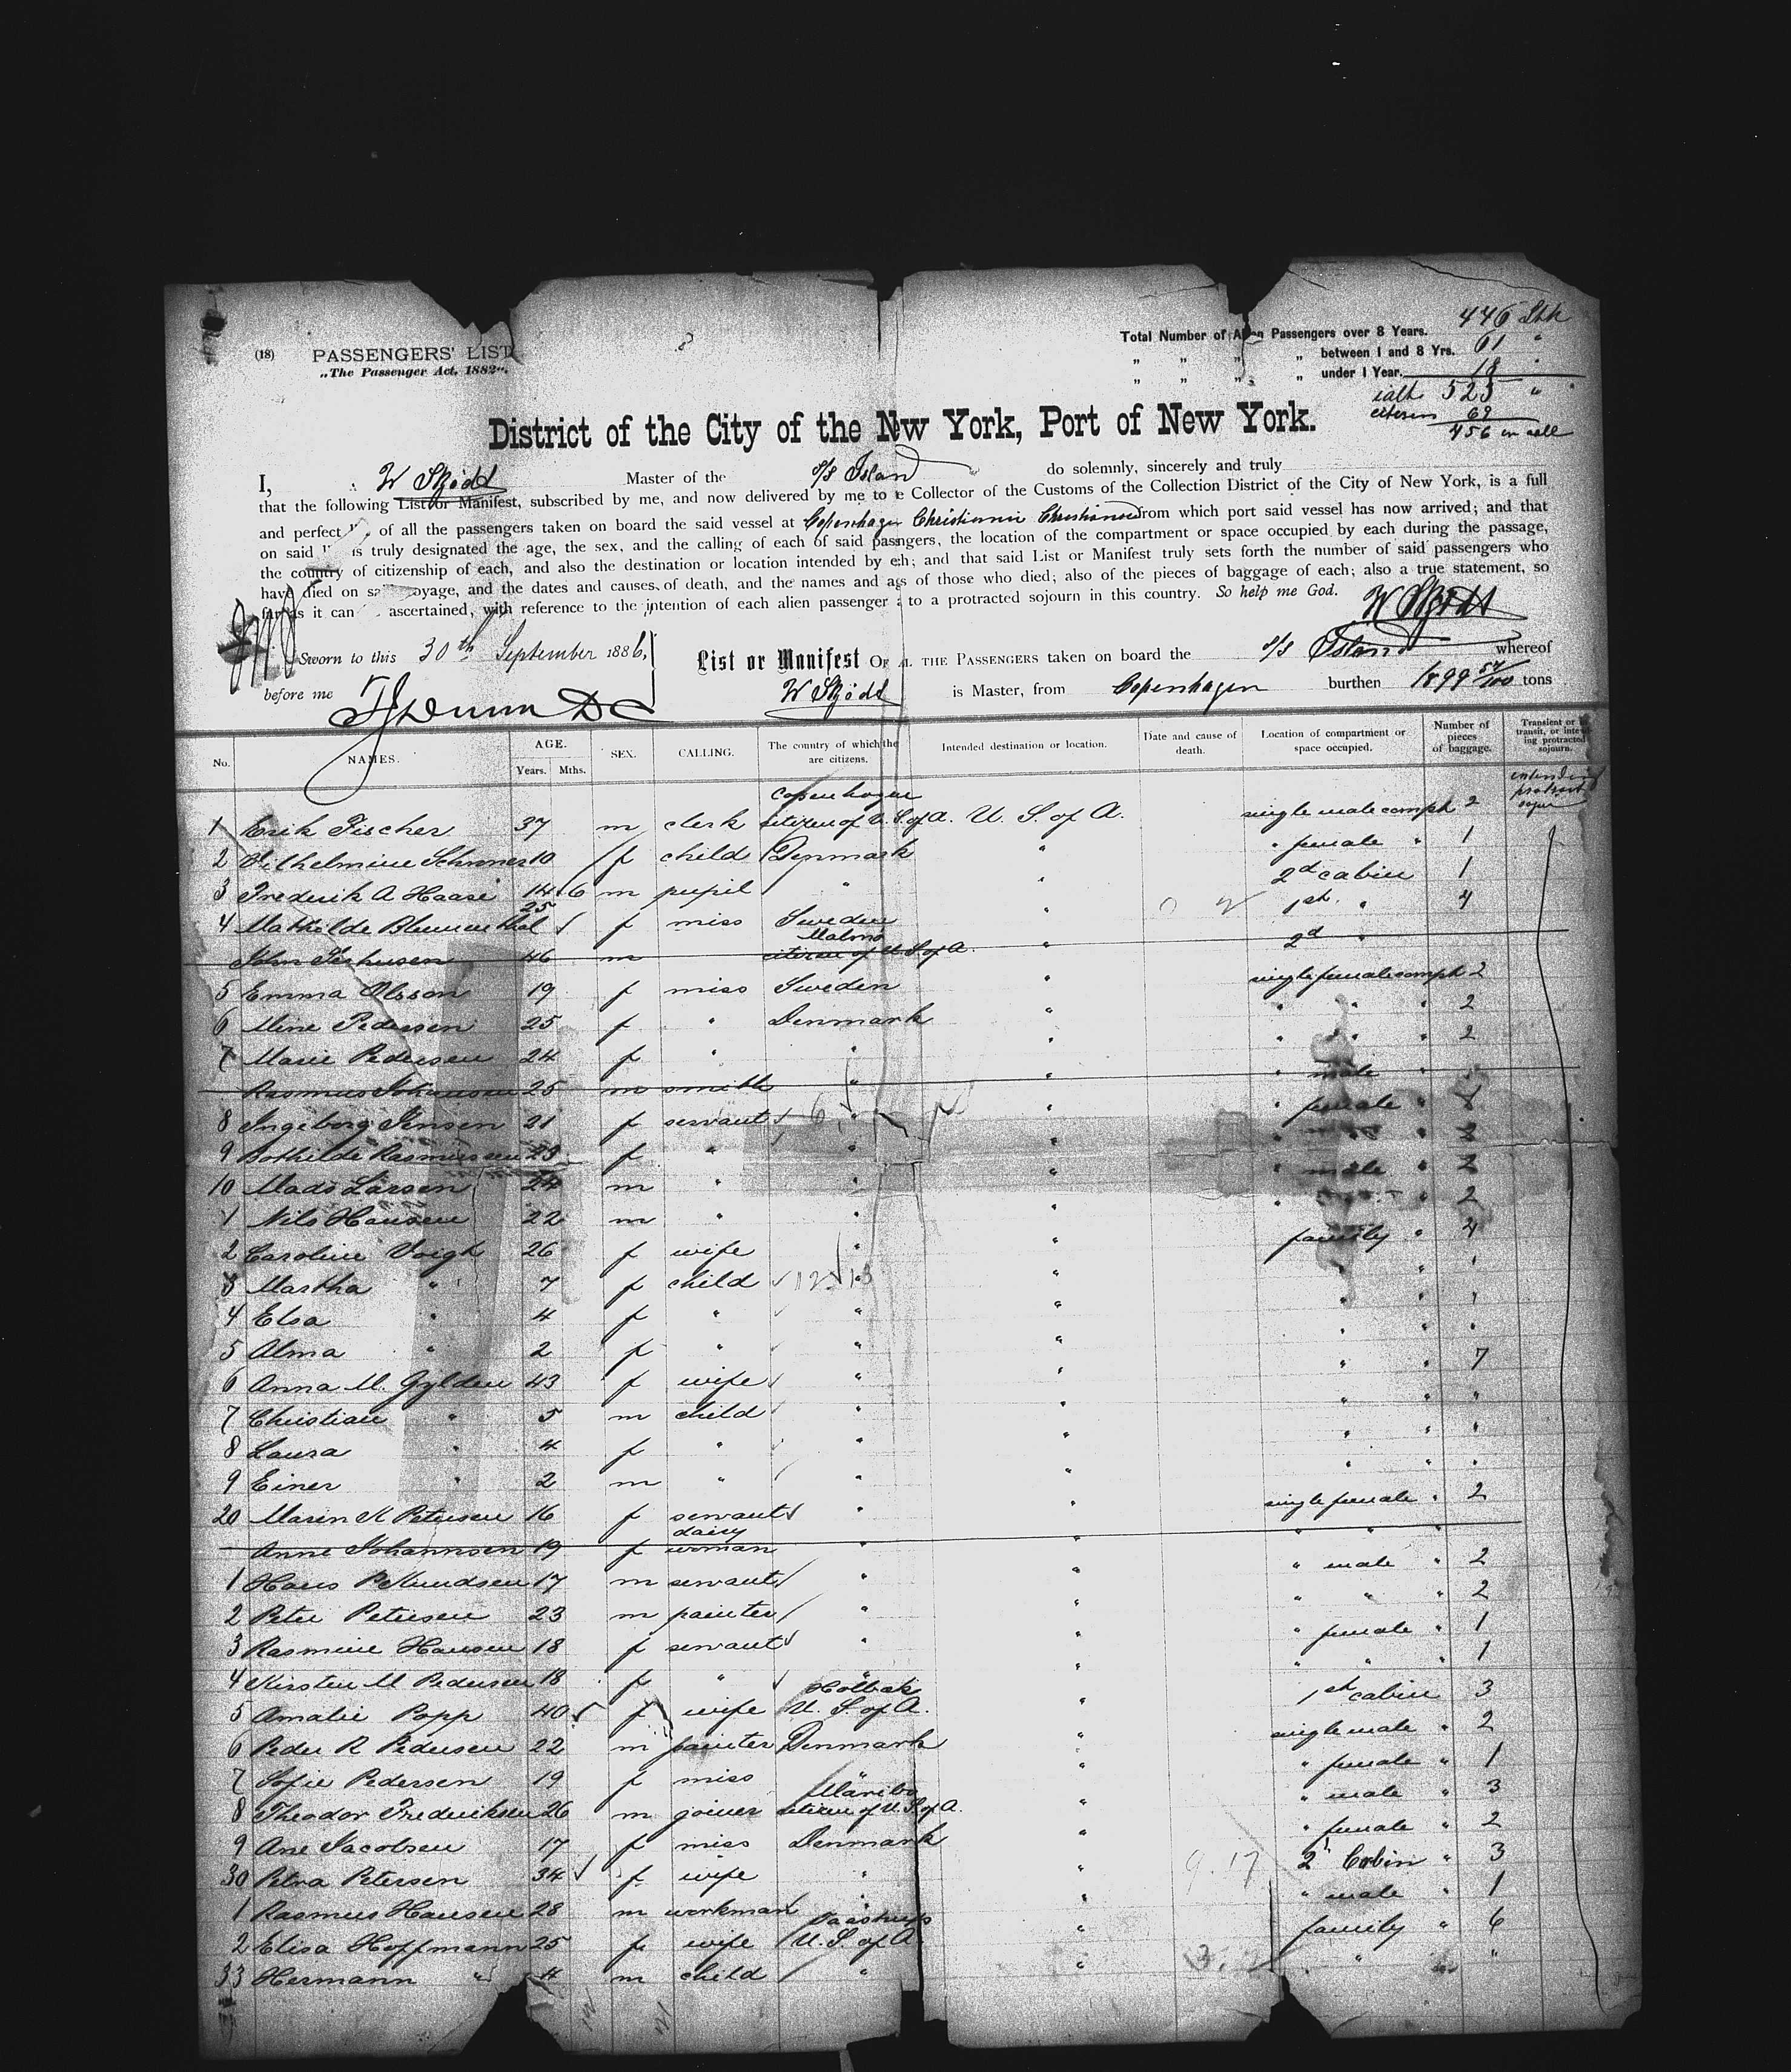 446 Stk
Total Number of Alien Passengers over 8 Years.
(18) PASSENGERS' LIST
„ „ „ „ between 1 and 8 Yrs. 61 "
„The Passenger Act, 1882“.
„ „ „ „ under 1 Year. 18 "
ialt 525 "
citizens 69
456 in all
District of the City of the New York, Port of New York.
I, W Skjødt Master of the S/S Island do solemnly, sincerely and truly
that the following List or Manifest, subscribed by me, and now delivered by me to e Collector of the Customs of the Collection District of the City of New York, is a full
and perfect of all the passengers taken on board the said vessel at Copenhagen Christiania Christiansand from which port said vessel has now arrived; and that
on said is truly designated the age, the sex, and the calling of each of said passngers, the location of the compartment or space occupied by each during the passage,
the country of citizenship of each, and also the destination or location intended by eh; and that said List or Manifest truly sets forth the number of said passengers who
have died on sa oyage, and the dates and causes of death, and the names and ags of those who died; also of the pieces of baggage of each; also a true statement, so
far as it can ascertained, with reference to the intention of each alien passenger to a protracted sojourn in this country. So help me God. W Skjødt
Sworn to this 30th September 1886, List or Manifest OF THE PASSENGERS taken on board the S/S Island whereof
before me W Skjødt is Master, from Copenhagen burthen 1899 57/100 tons
No. NAMES. AGE. Years. Mths. SEX. CALLING. The country of which the are citizens. Intended destination or location. Date and cause of death. Location of compartment or space occupied. Number of pieces of baggage. Transient or in transit, or intending protracted sojourn.
Copenhagen intending protract sojur
1 Erik Fischer 37 m clerk citizen of U.S. of A. U. S. of A. single male compt 2
2 Vilhelmine Schrmer 10 f child Denmark " " female " 1
3 Frederik A Haase 14 6 m pupil " " 2d cabin 1
4 Mathilde Blumenthal 25 f miss Sweden " 1st " 4
Malmö
John Terhusen 46 m citizen of U.S. of A. " 2d "
5 Emma Olsson 19 f miss Sweden " single female compt 2
6 Mine Pedersen 25 f " Denmark " " " " 2
7 Marie Pedersen 24 f " " " " " " 2
Rasmus Johansen 25 m smith " " " male "
8 Ingeborg Jensen 21 f servant " " " female " 1
9 Bothilde Rasmussen 23 f " " " " " " 2
10 Mads Larsen 24 m " " " " male " 2
1 Nils Hansen 22 m " " " " " " 2
2 Caroline Voigt 26 f wife " " family " 4
3 Martha " 7 f child " " " " "
4 Elsa " 4 f " " " " " "
5 Alma " 2 f " " " " " "
6 Anna M. Gylden 43 f wife " " " " 7
7 Christian " 5 m child " " " " "
8 Laura " 4 f " " " " " "
9 Einer " 2 m " " " " " "
20 Maren K Petersen 16 f servant " " single female " 2
Anne Johannsen 19 f dairy woman " " " " "
1 Hans P Knudsen 17 m servant " " " male " 2
2 Peter Petersen 23 m painter " " " " " 2
3 Rasmine Hansen 18 f servant " " " female " 1
4 Kirsten M Pedersen 18 f " " " " " " 1
Holbæk
5 Amalie Popp 40 f wife U. S. of A. " 1st cabin 3
6 Peder R Pedersen 22 m painter Denmark " single male " 2
7 Sofie Pedersen 19 f miss " " " female " 1
Maribo
8 Theodor Frederiksen 26 m joiner citizen of U.S. of A. " " male " 3
9 Ane Jacobsen 17 f miss Denmark " " female " 2
30 Petra Petersen 34 f wife " " 2d Cabin " 3
1 Rasmus Hansen 28 m workman " " " male " 1
2 Elisa Hoffmann 25 f wife U. S. of A. " family " 6
33 Hermann " 4 m child " " " " "